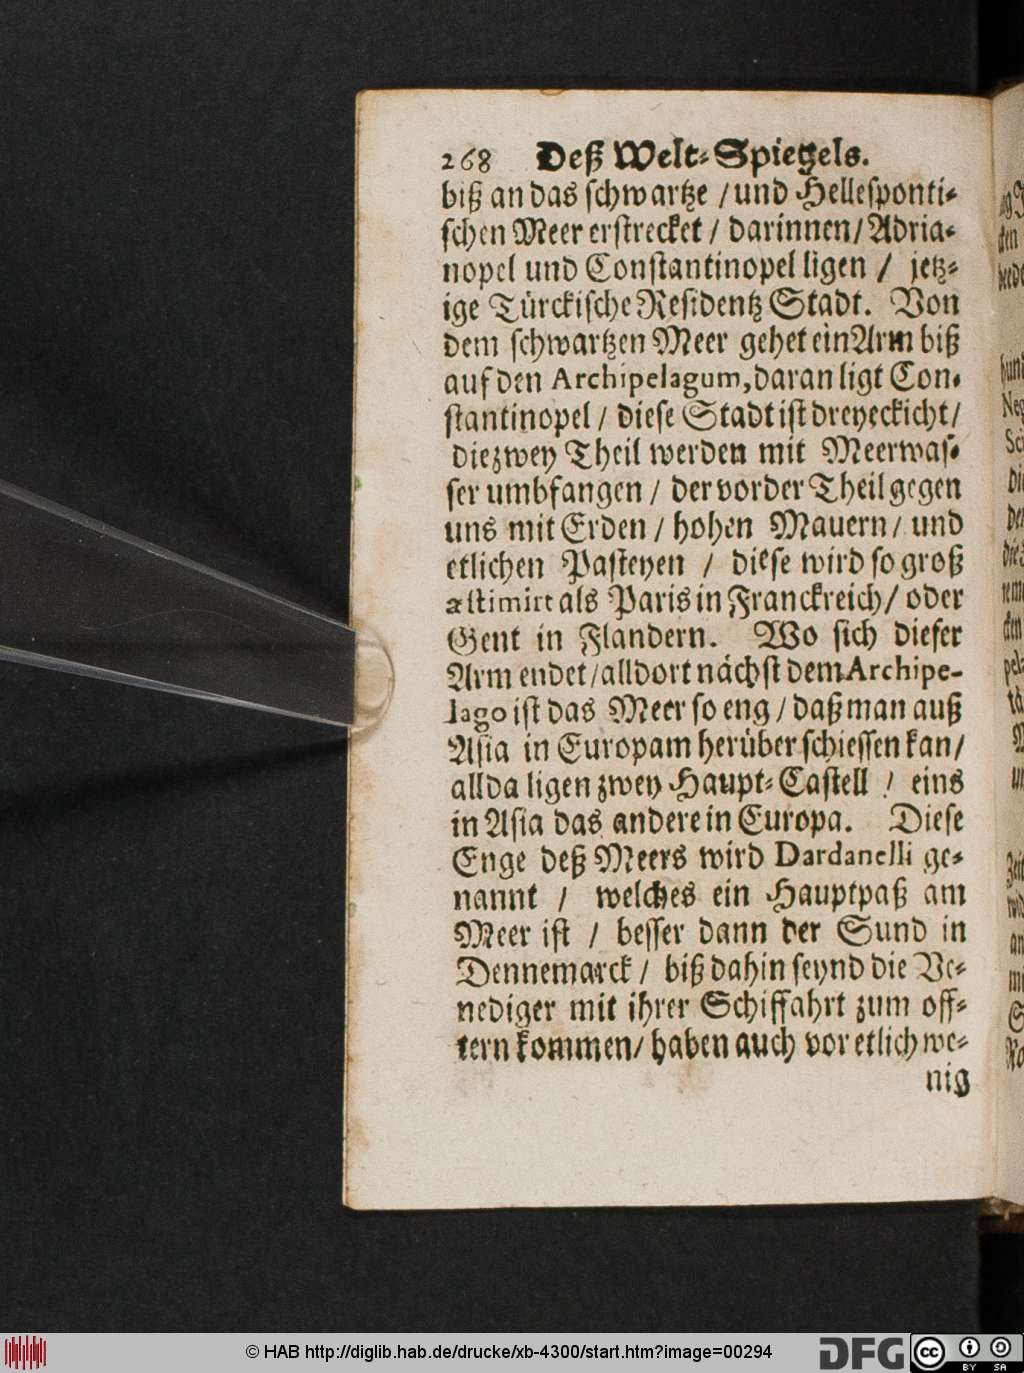 268 Deß Welt-Spiegels.
biß an das schwartze / und Hellesponti-
schen Meer erstrecket / darinnen / Adria-
nopel und Constantinopel ligen / jetz-
ige Türckische Residentz Stadt. Von
dem schwartzen Meer gehet ein Arm biß
auf den Archipelagum, daran ligt Con-
stantinopel / diese Stadt ist dreyeckicht /
die zwey Theil werden mit Meerwas-
ser umbfangen / der vorder Theil gegen
uns mit Erden / hohen Mauern / und
etlichen Pasteyen / diese wird so groß
æstimirt als Paris in Franckreich / oder
Gent in Flandern. Wo sich dieser
Arm endet / alldort nächst dem Archipe-
lago ist das Meer so eng / daß man auß
Asia in Europam herüber schiessen kan /
allda ligen zwey Haupt-Castell / eins
in Asia das andere in Europa. Diese
Enge deß Meers wird Dardanelli ge-
nannt / welches ein Hauptpaß am
Meer ist / besser dann der Sund in
Dennemarck / biß dahin seynd die Ve-
nediger mit ihrer Schiffahrt zum öff-
tern kommen / haben auch vor etlich we-
nig
© HAB http://diglib.hab.de/drucke/xb-4300/start.htm?image=00294
DFG
cc
BY SA